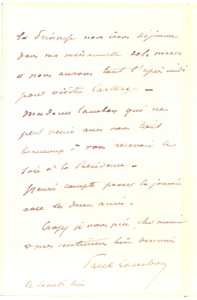 la Princesse nous irons déjeuner
dans ma maisonnette
et nous aurons tout l'après midi
pour visiter Carthage —
Madame Cambon qui ne
peut venir avec nous tient
beaucoup à vous recevoir le
soir à la Résidence.
Henri compte passer la journée
avec les deux amis.
Croyez à vous prie, cher
à mes sentiments bien dévoués
Paul Cambon